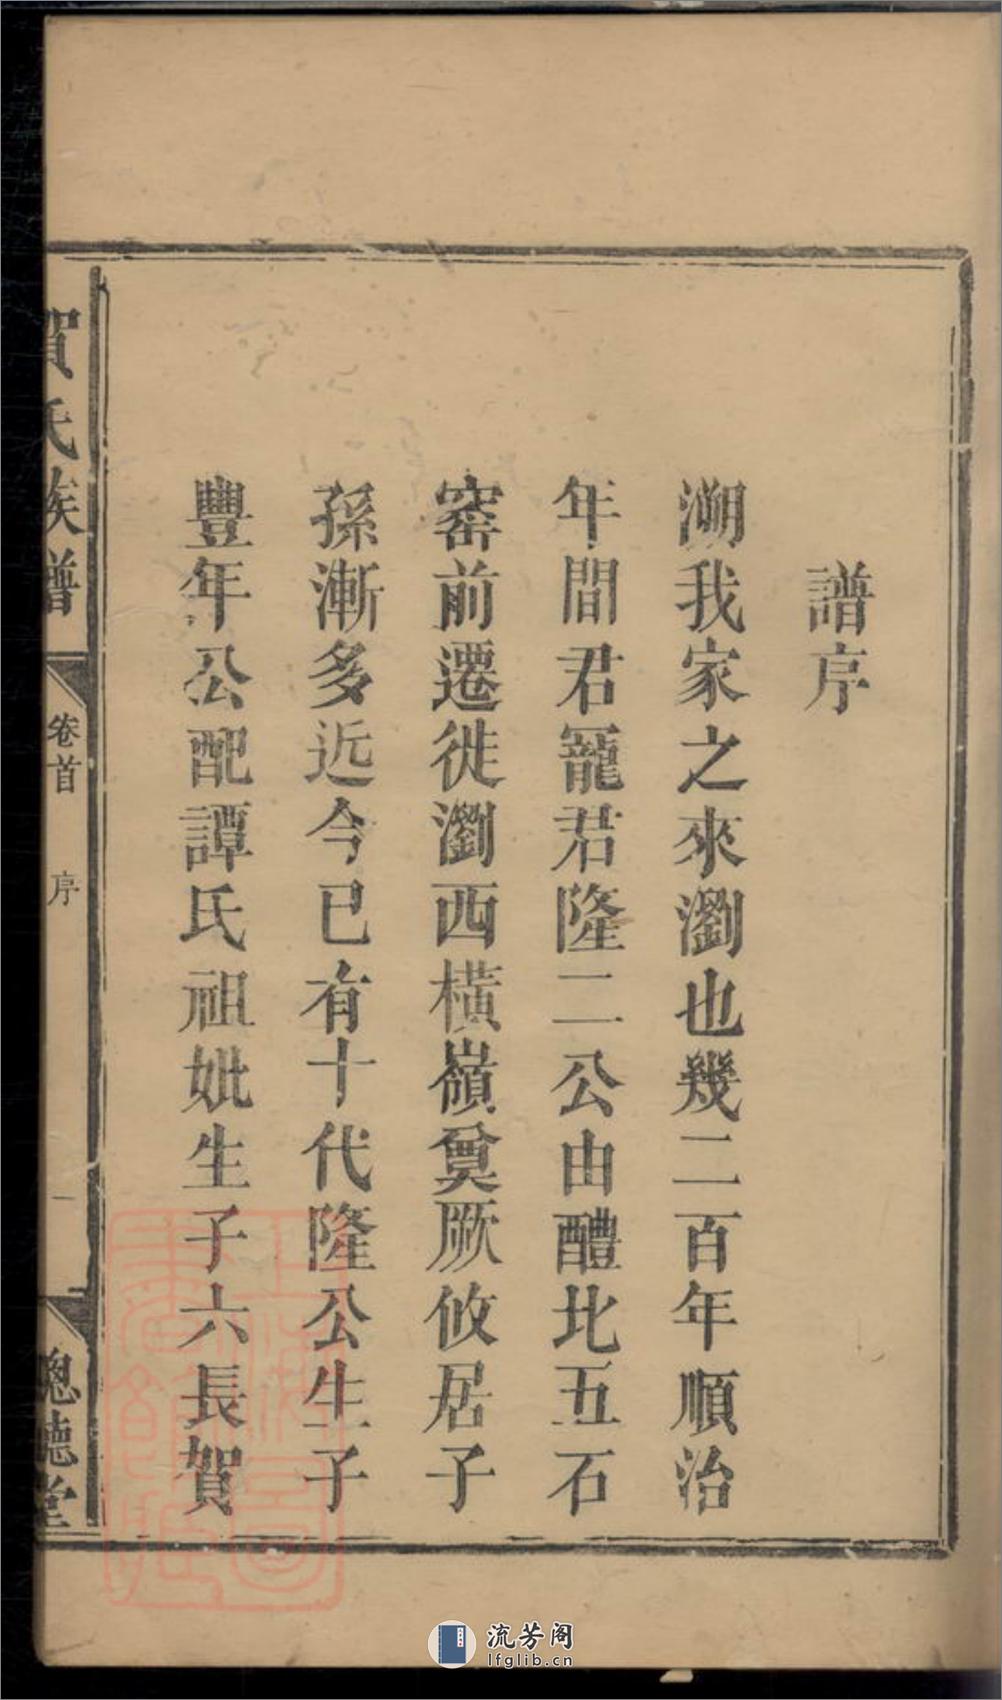 譜序
溯我家之來瀏也幾二百年順治
年間君寵君隆二公由醴北五石
窰前遷徙瀏西橫嶺奠厥攸居子
孫漸多近今已有十代隆公生子
豐年公配譚氏祖妣生子六長賀
賀氏族譜
卷首
序
一
聰聽堂
上海圖書館藏
流芳阁
lfglib.cn